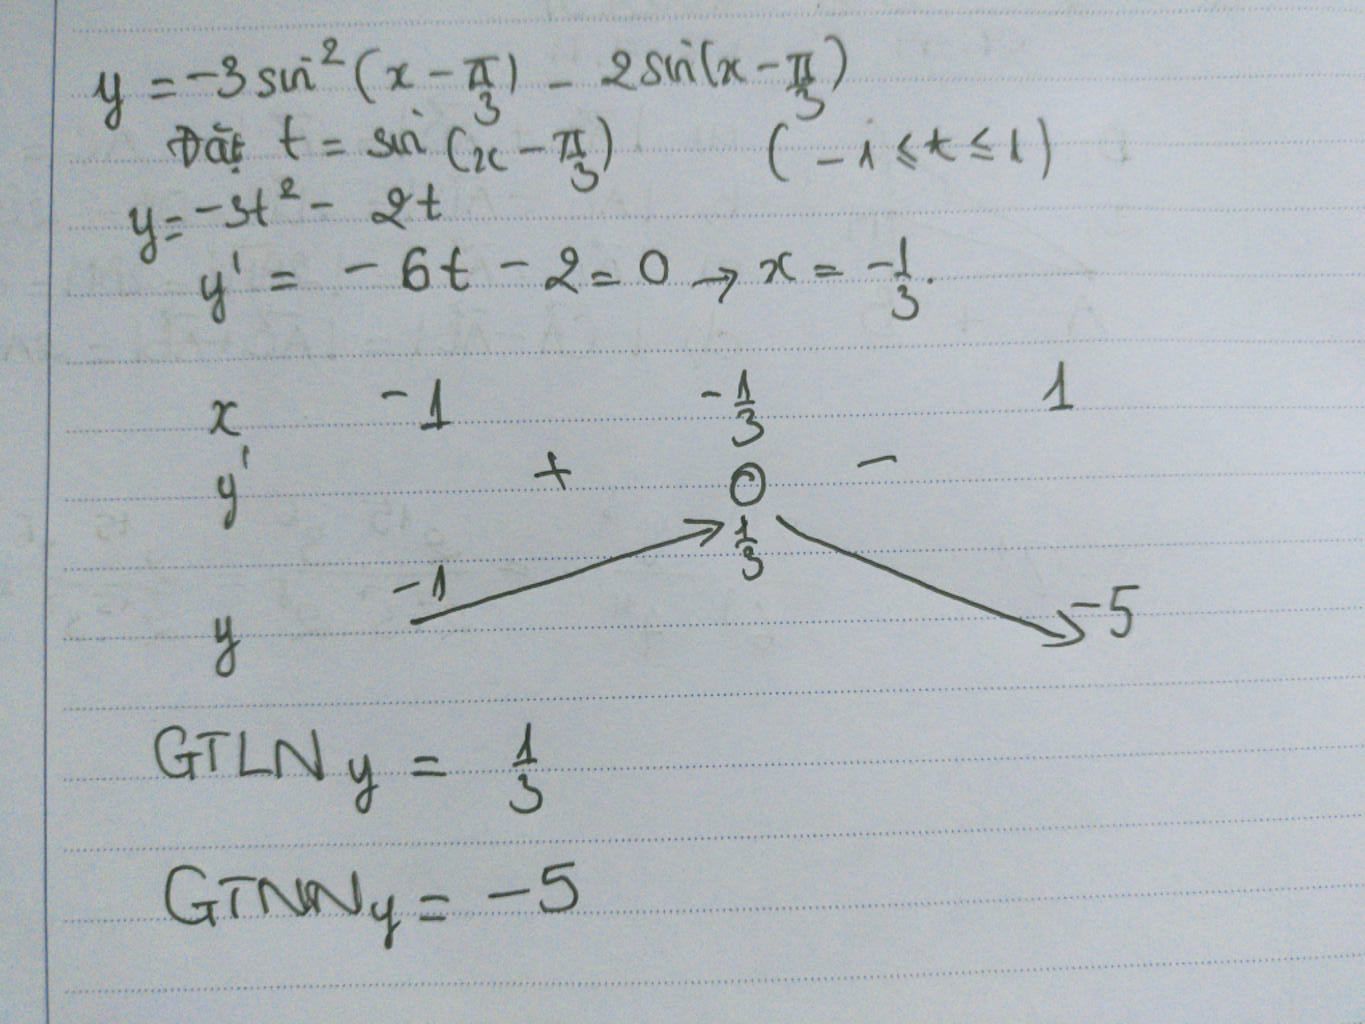 y = -3 sin² (x - π/3) - 2 sin(x - π/3)
Đặt t = sin (x - π/3) ( -1 ≤ t ≤ 1)
y = -3t² - 2t
y' = - 6t - 2 = 0 → x = -1/3.
x -1 -1/3 1
y' + 0 -
y -1 1/3 -5
GTLN y = 1/3
GTNN y = -5